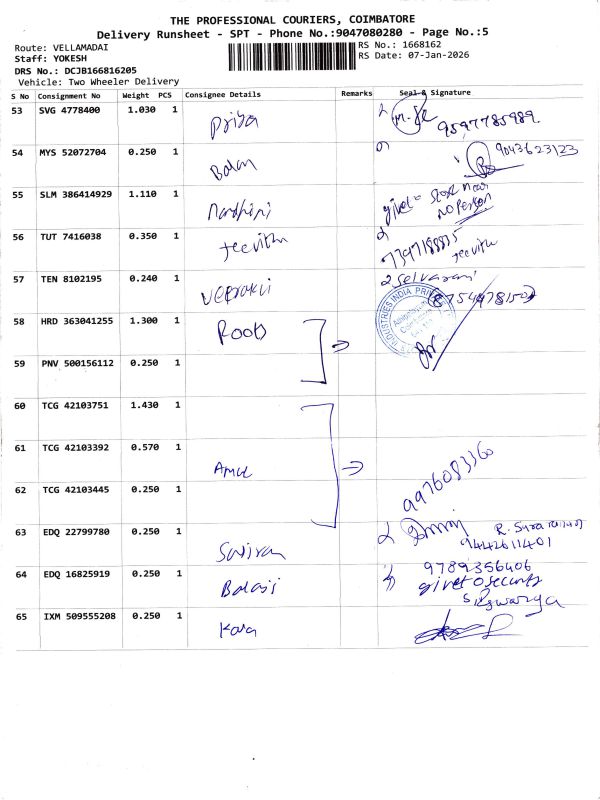 THE PROFESSIONAL COURIERS, COIMBATORE
Delivery Runsheet - SPT - Phone No.:9047080280 - Page No.:5
Route: VELLAMADAI
RS No.: 1668162
Staff: YOKESH
RS Date: 07-Jan-2026
DRS No.: DCJB166816205
Vehicle: Two Wheeler Delivery
S No Consignment No Weight PCS Consignee Details Remarks Seal & Signature
53 SVG 4778400 1.030 1 Priya
9597785989
54 MYS 52072704 0.250 1 Balan
9043623123
55 SLM 386414929 1.110 1 Nandhini
no Person
56 TUT 7416038 0.350 1 Jeevith
7397188835
Jeevith
57 TEN 8102195 0.240 1
Selvarani
58 HRD 363041255 1.300 1 Roob
59 PNV 500156112 0.250 1
60 TCG 42103751 1.430 1
61 TCG 42103392 0.570 1 Amul
9976083360
62 TCG 42103445 0.250 1
63 EDQ 22799780 0.250 1
9442611401
64 EDQ 16825919 0.250 1 Balaji
9789356406
65 IXM 509555208 0.250 1